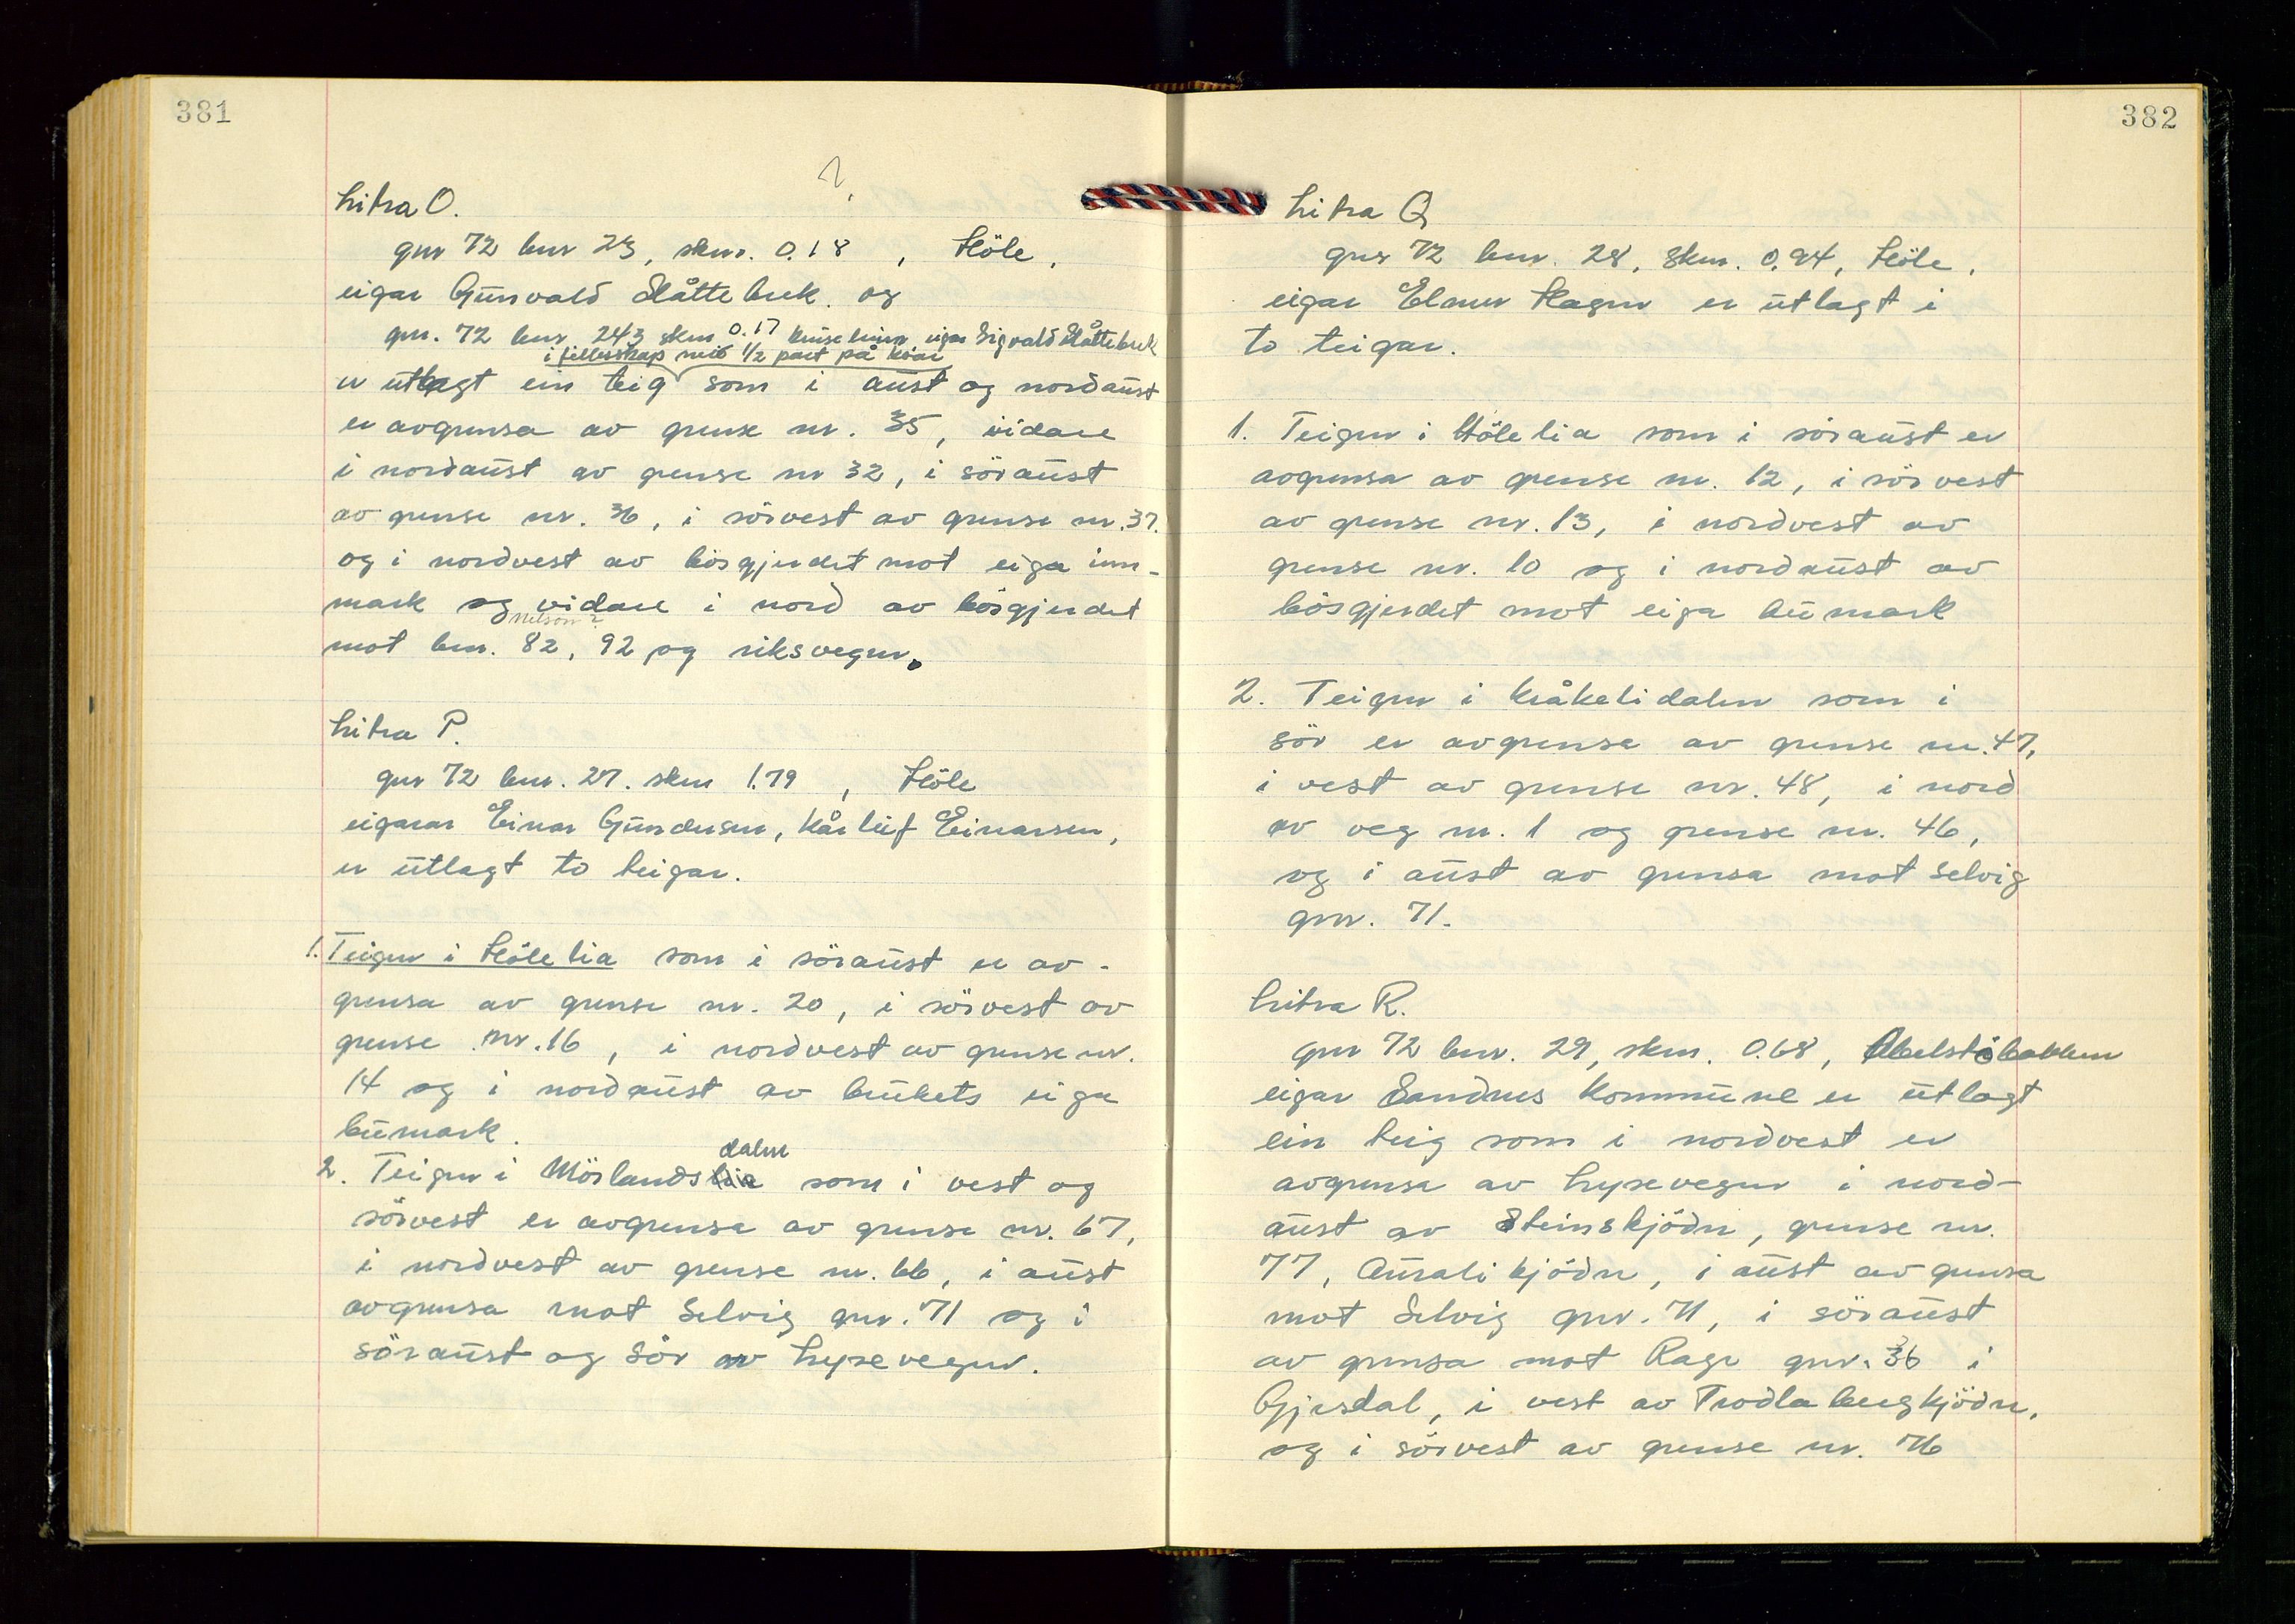 381
2.
Litra O.
gnr 72 bnr 23, skm. 0.18 , Höle,
eigar Gunvald Slåttebrek. og
gnr. 72 bnr 243 skm 0.17 eigar Sigvald Slåttebrek
i fellesskap med 1/2 part på kvar
er utlagt ein teig som i aust og nordaust
er avgrensa av grense nr. 35, vidare
i nordaust av grense nr 32, i söraust
av grense nr. 36, i sörvest av grense nr. 37.
og i nordvest av bösgjerdet mot eiga inn-
mark og vidare i nord av bösgjerdet
Nilson?
mot bnr. 82, 92 og riksvegen.
Litra P.
gnr 72 bnr. 27. skm 1.79 , Höle
eigarar Einar Gundersen, Kårleif Einarsen,
er utlagt to teigar.
1. Teigen i Hölelia som i söraust er av-
grensa av grense nr. 20, i sörvest av
grense nr. 16, i nordvest av grense nr.
14 og i nordaust av brukets eiga
bumark.
dalen
2. Teigen i Mörlandslia som i vest og
sörvest er avgrensa av grense nr. 67,
i nordvest av grense nr. 66, i aust
avgrensa mot Selvig gnr. 71 og i
söraust og sör av Lysevegen.
382
Litra Q
gnr 72 bnr. 28, skm. 0.94, Höle,
eigar Elmer Hagen er utlagt i
to teigar.
1. Teigen i Hölelia som i söraust er
avgrensa av grense nr. 12, i sörvest
av grense nr. 13, i nordvest av
grense nr. 10 og i nordaust av
bösgjerdet mot eiga bumark
2. Teigen i Kråkelidalen som i
sör er avgrensa av grense nr. 47,
i vest av grense nr. 48, i nord
av veg nr. 1 og grense nr. 46,
og i aust av grensa mot Selvig
gnr. 71.
Litra R.
gnr 72 bnr. 29, skm. 0.68, Abelstöbakken
eigar Sandnes Kommune er utlagt
ein teig som i nordvest er
avgrensa av Lysevegen i nord-
aust av Steinskjödn, grense nr.
77, Auralikjödn, i aust av grensa
mot Selvig gnr. 71, i söraust
av grensa mot Rage gnr. 36 i
Gjesdal, i vest av Trodlabergkjödn,
og i sörvest av grense nr. 76